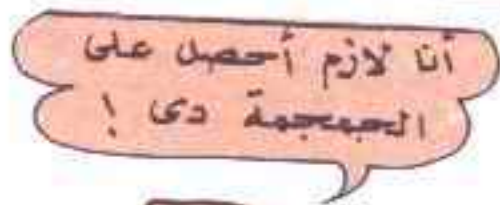 أنا لازم أحصل على
الجمجمة دى !